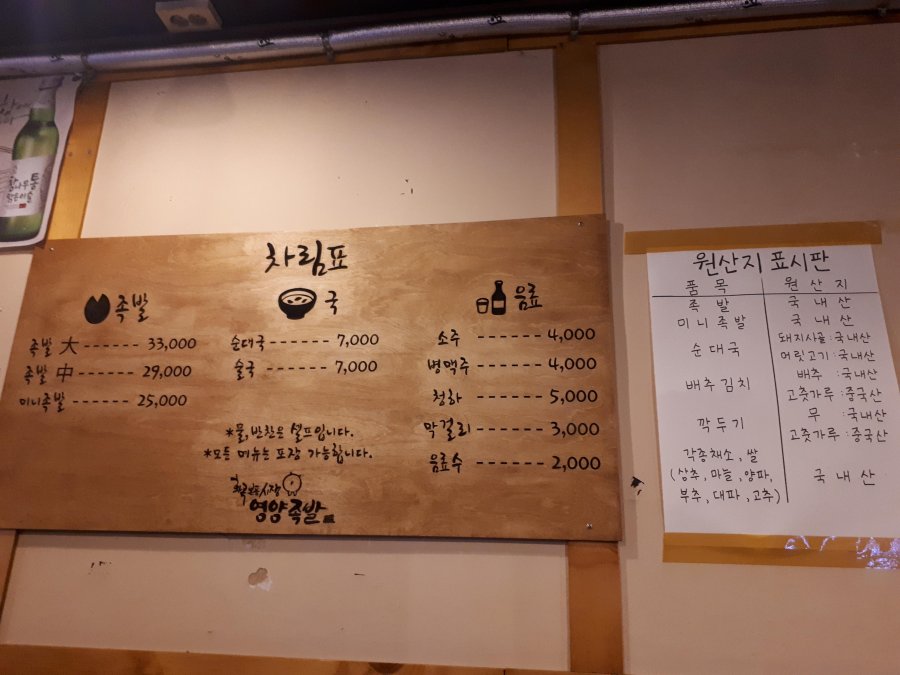 참나무통
맑은이슬
차림표
족발
족발 大 ------ 33,000
족발 中 ------ 29,000
미니족발 ------ 25,000
국
순대국 ------- 7,000
술국 ------- 7,000
음료
소주 ------ 4,000
병맥주 ------ 4,000
청하 ------ 5,000
막걸리 ------ 3,000
음료수 ------ 2,000
*물, 반찬은 셀프입니다.
*모든 메뉴는 포장 가능합니다.
영양족발
원산지 표시판
품목 원산지
족발 국내산
미니족발 국내산
순대국 돼지사골:국내산
머릿고기:국내산
배추김치 배추:국내산
고춧가루:중국산
깍두기 무:국내산
고춧가루:중국산
각종채소, 쌀
(상추, 마늘, 양파, 국내산
부추, 대파, 고추)